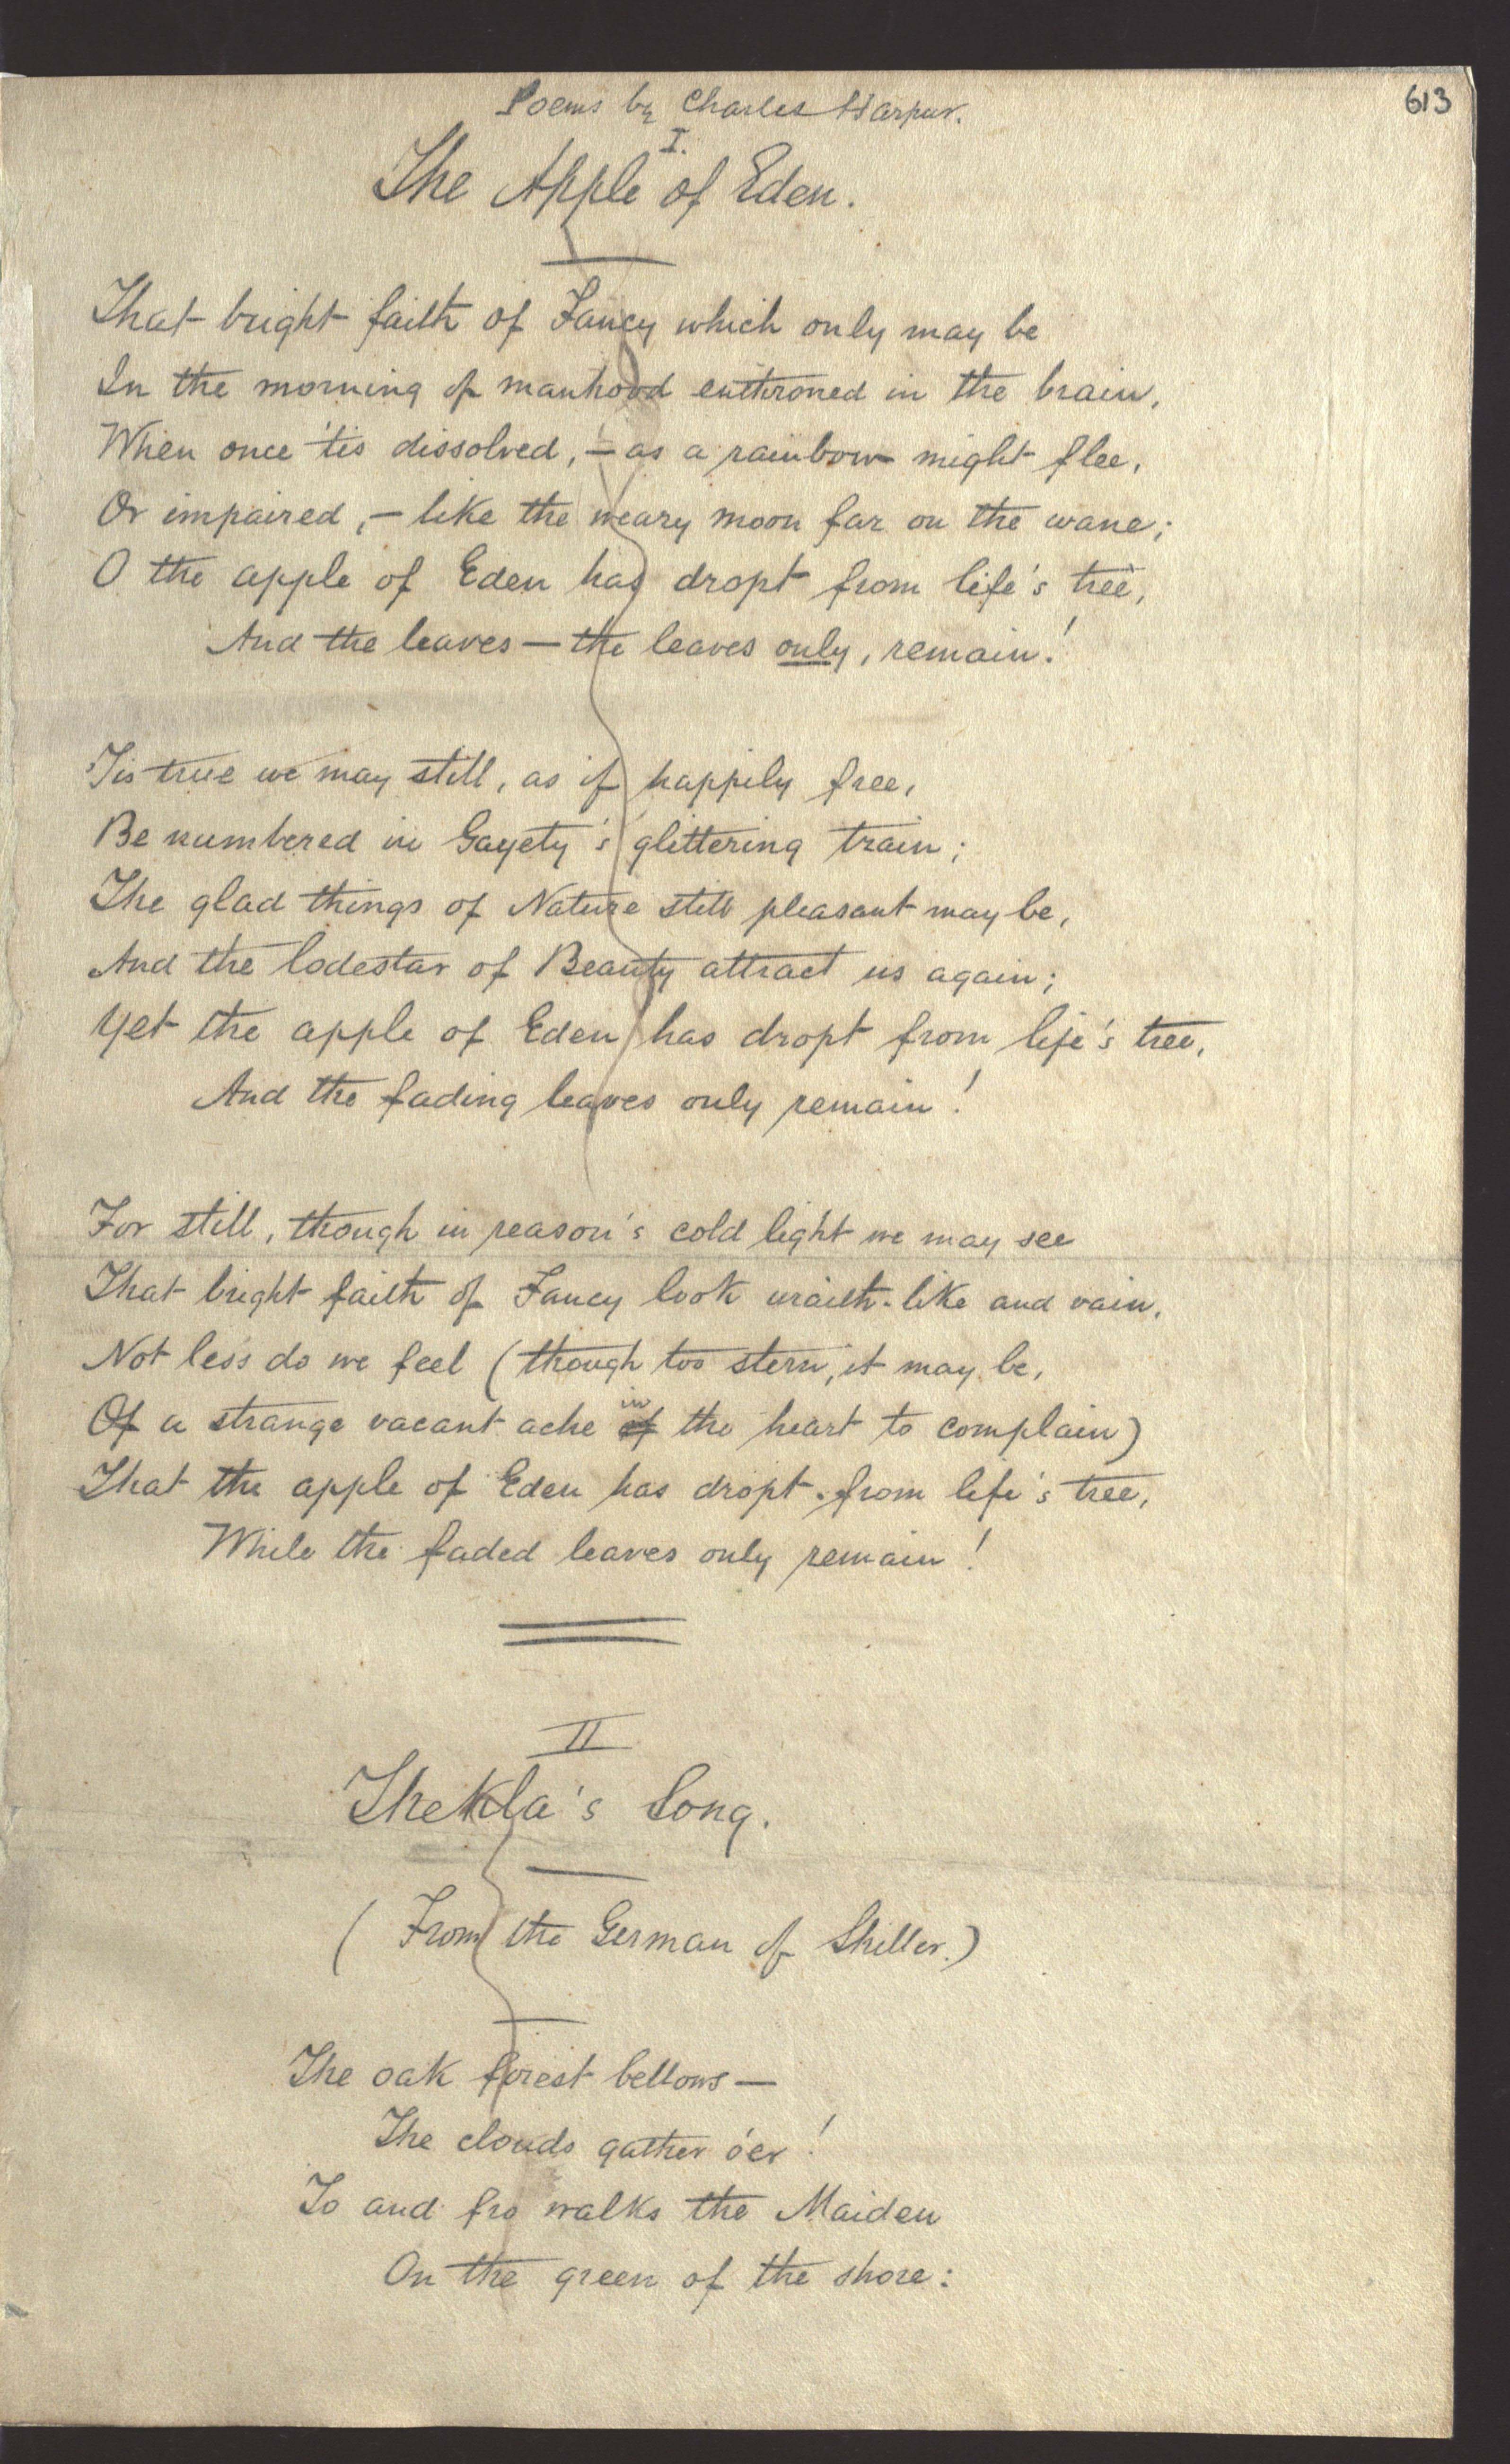 Poems by Charles Harpur.
613
I.
The Apple of Eden.
That bright faith of Fancy which only may be
In the morning of manhood enthroned in the brain,
When once 'tis dissolved, – as a rainbow might flee,
Or impaired, – like the weary moon far on the wane;
O the apple of Eden has dropt from life's tree,
And the leaves — the leaves only, remain!
'Tis true we may still, as if happily free,
Be numbered in Gayety's glittering train;
The glad things of Nature still pleasant may be,
And the lodestar of Beauty attract us again;
Yet the apple of Eden has dropt from life's tree,
And the fading leaves only remain!
For still, though in reason's cold light we may see
That bright faith of Fancy look wraith-like and vain,
Not less do we feel (though too stern, it may be,
Of a strange vacant ache of in the heart to complain)
That the apple of Eden has dropt from life's tree,
While the faded leaves only remain!
II
Thekla's Song.
(From the German of Shiller.)
The oak forest bellows —
The clouds gather o'er!
To and fro walks the Maiden
On the green of the shore: